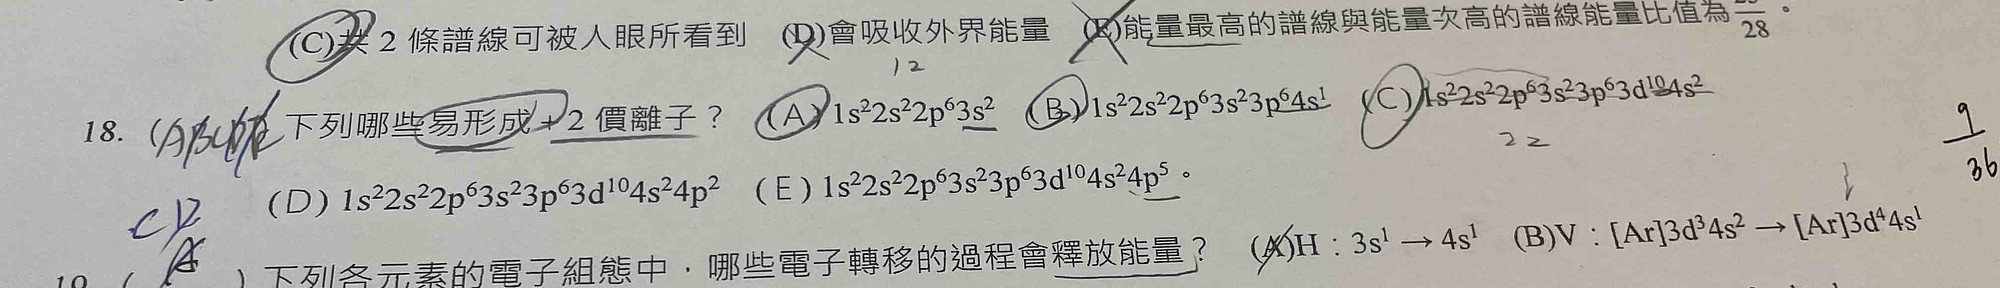 (C)共 2 條譜線可被人眼所看到 (D)會吸收外界能量 (E)能量最高的譜線與能量次高的譜線能量比值為 28 。
12
18. ( 下列哪些易形成+2 價離子? (A)1s²2s²2p⁶3s² (B)1s²2s²2p⁶3s²3p⁶4s¹ (C)1s²2s²2p⁶3s²3p⁶3d¹⁰4s²
22
9
36
(D) 1s²2s²2p⁶3s²3p⁶3d¹⁰4s²4p² (E) 1s²2s²2p⁶3s²3p⁶3d¹⁰4s²4p⁵。
CD
19. ( ) 下列各元素的電子組態中,哪些電子轉移的過程會釋放能量? (A)H:3s¹ → 4s¹ (B)V:[Ar]3d³4s² → [Ar]3d⁴4s¹